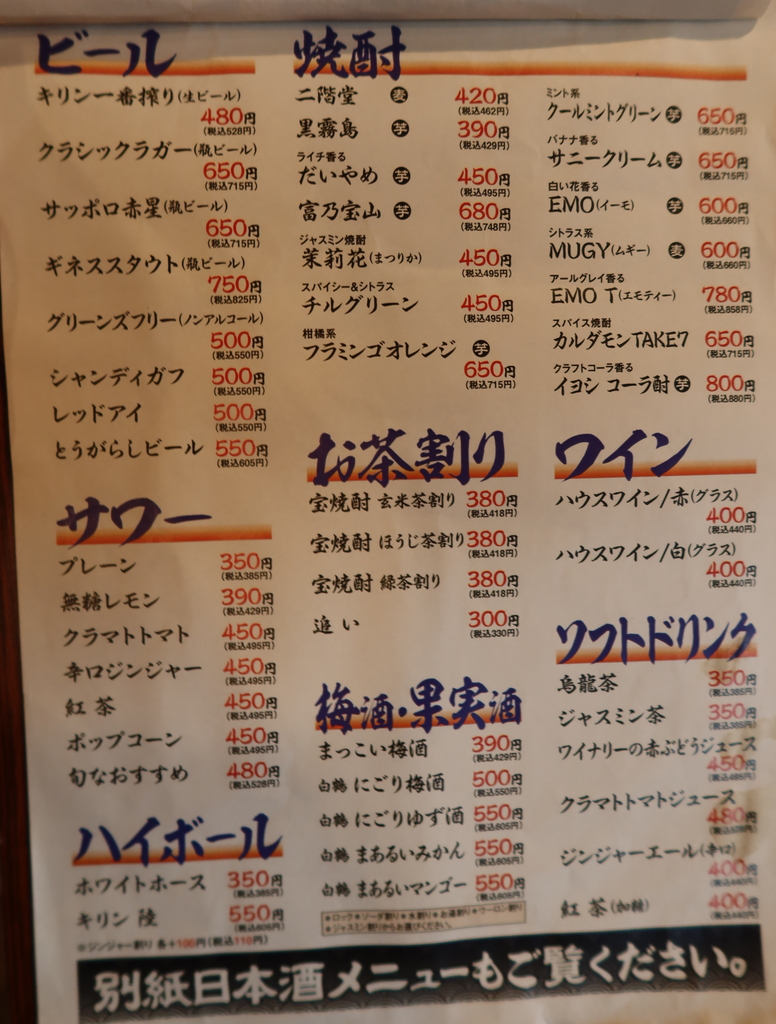 ビール
キリン一番搾り(生ビール)
480円
(税込528円)
クラシックラガー(瓶ビール)
650円
(税込715円)
サッポロ赤星(瓶ビール)
650円
(税込715円)
ギネススタウト(瓶ビール)
750円
(税込825円)
グリーンズフリー(ノンアルコール)
500円
(税込550円)
シャンディガフ 500円
(税込550円)
レッドアイ 500円
(税込550円)
とうがらしビール 550円
(税込605円)
サワー
プレーン 350円
(税込385円)
無糖レモン 390円
(税込429円)
クラマトトマト 450円
(税込495円)
辛口ジンジャー 450円
(税込495円)
紅茶 450円
(税込495円)
ポップコーン 450円
(税込495円)
旬なおすすめ 480円
(税込528円)
ハイボール
ホワイトホース 350円
(税込385円)
キリン 陸 550円
(税込605円)
※ジンジャー割り 各+100円(税込110円)
焼酎
二階堂 麦 420円
(税込462円)
黒霧島 芋 390円
(税込429円)
ライチ香る
だいやめ 芋 450円
(税込495円)
富乃宝山 芋 680円
(税込748円)
ジャスミン焼酎
茉莉花(まつりか) 450円
(税込495円)
スパイシー&シトラス
チルグリーン 450円
(税込495円)
柑橘系
フラミンゴオレンジ 芋
650円
(税込715円)
ミント系
クールミントグリーン 芋 650円
(税込715円)
バナナ香る
サニークリーム 芋 650円
(税込715円)
白い花香る
EMO(イーモ) 芋 600円
(税込660円)
シトラス系
MUGY(ムギー) 麦 600円
(税込660円)
アールグレイ香る
EMO T(エモティー) 780円
(税込858円)
スパイス焼酎
カルダモンTAKE7 650円
(税込715円)
クラフトコーラ香る
イヨシ コーラ酎 芋 800円
(税込880円)
お茶割り
宝焼酎 玄米茶割り 380円
(税込418円)
宝焼酎 ほうじ茶割り 380円
(税込418円)
宝焼酎 緑茶割り 380円
(税込418円)
追い 300円
(税込330円)
梅酒・果実酒
まっこい梅酒 390円
(税込429円)
白鶴 にごり梅酒 500円
(税込550円)
白鶴 にごりゆず酒 550円
(税込605円)
白鶴 まあるいみかん 550円
(税込605円)
白鶴 まあるいマンゴー 550円
(税込605円)
※ロック※ソーダ割り※水割り※お湯割り※ウーロン割り
※ジャスミン割りからお選びください。
ワイン
ハウスワイン/赤(グラス)
400円
(税込440円)
ハウスワイン/白(グラス)
400円
(税込440円)
ソフトドリンク
烏龍茶 350円
(税込385円)
ジャスミン茶 350円
(税込385円)
ワイナリーの赤ぶどうジュース
450円
クラマトトマトジュース
480円
(税込528円)
ジンジャーエール(辛口)
400円
(税込440円)
紅茶(加糖) 400円
(税込440円)
別紙日本酒メニューもご覧ください。